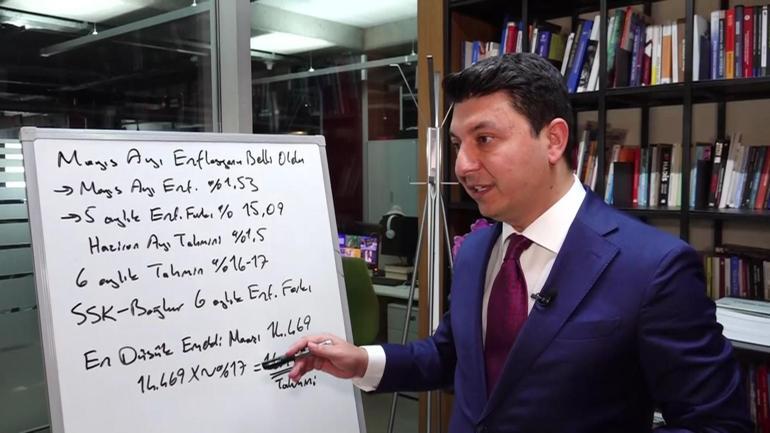 Mayıs Ayı Enflasyonu Belli Oldu
→ Mayıs Ayı Enf. %1,53
→ 5 aylık Enf. Farkı % 15,09
Haziran Ayı Tahmini %1,5
6 aylık Tahmin %16-17
SSK-Bağkur 6 aylık Enf. Farkı
En Düşük Emekli Maaşı 14.469
14.469 X %17 =
Tahmini